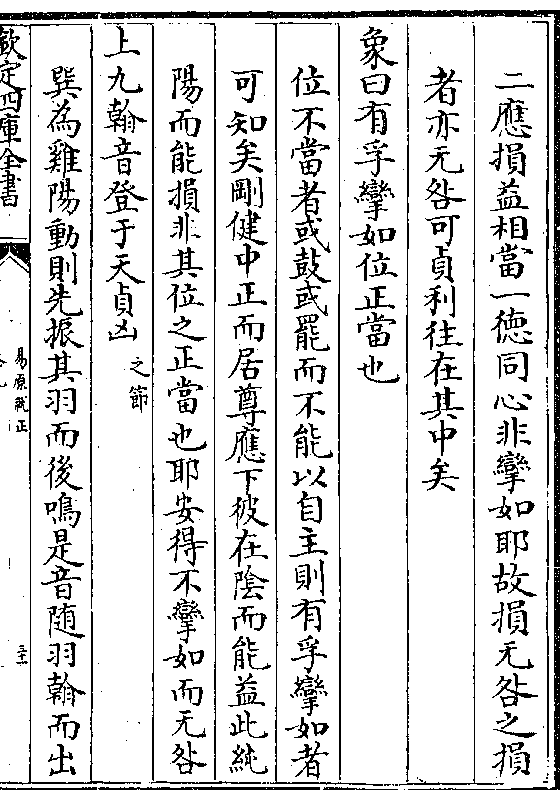 二應損益相當一徳同心非攣如耶故損无咎之損
者亦无咎可貞利往在其中矣
象曰有孚攣如位正當也
位不當者或鼓或罷而不能以自主則有孚攣如者
可知矣剛健中正而居尊應下彼在陰而能益此純
陽而能損非其位之正當也耶安得不攣如而无咎
上九翰音登于天貞凶之節
巽為雞陽動則先振其羽而後鳴是音随羽翰而出
欽定四庫全書
易原就正